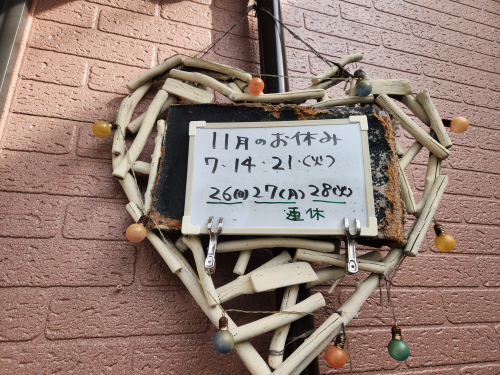 11月のお休み
7・14・21・(火)
26(日)27(月)28(火)
連休